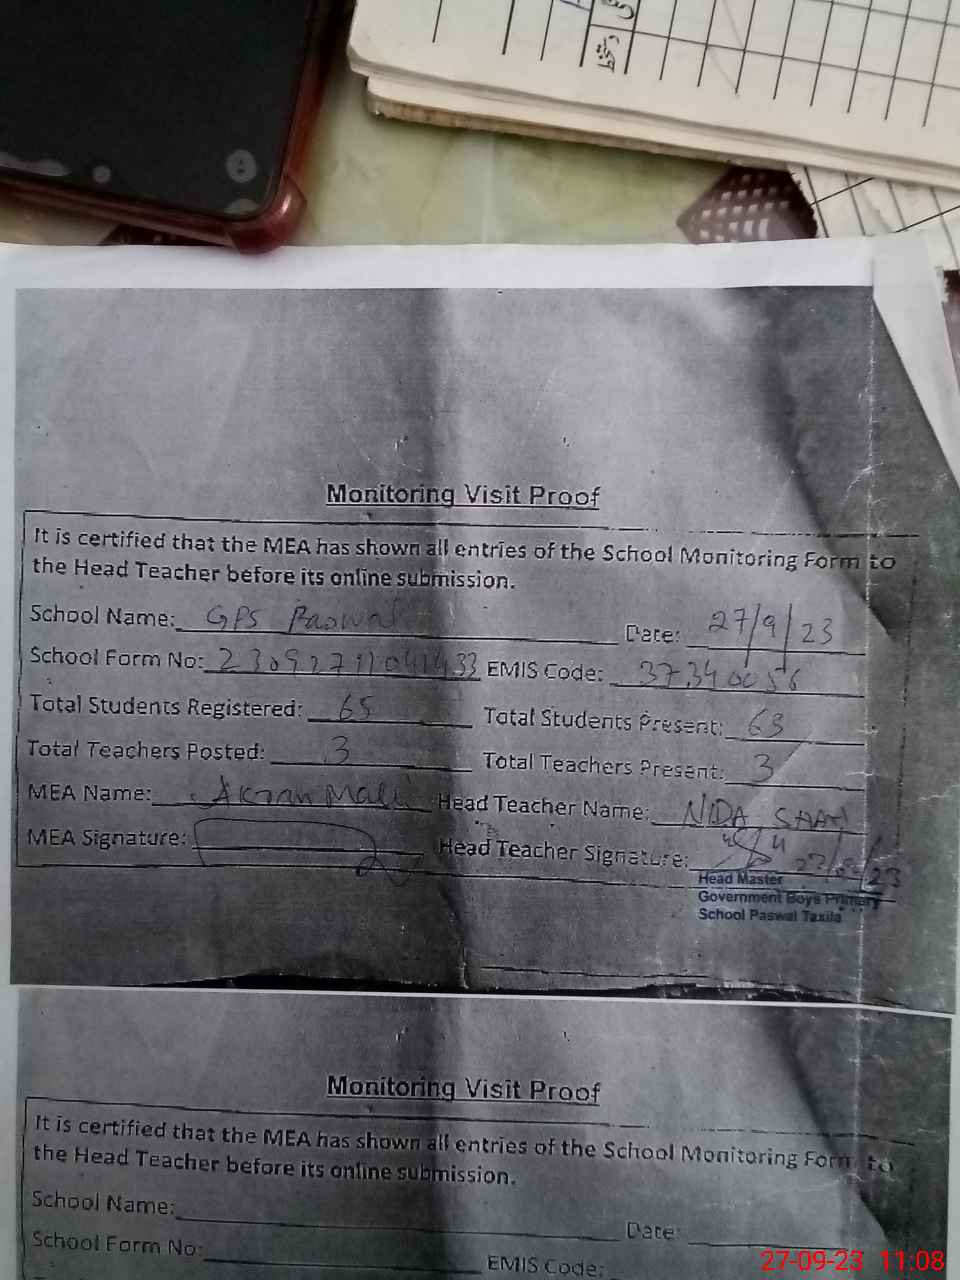 Monitoring Visit Proof
It is certified that the MEA has shown all entries of the School Monitoring Form to
the Head Teacher before its online submission.
School Name: GPS Paswal Date: 27/9/23
School Form No: 23092711041433 EMIS Code: 37340056
Total Students Registered: 65 Total Students Present: 63
Total Teachers Posted: 3 Total Teachers Present: 3
MEA Name: Head Teacher Name: NIDA
MEA Signature: Head Teacher Signature:
Head Master
Government Boys Primary
School Paswal Taxila
Monitoring Visit Proof
It is certified that the MEA has shown all entries of the School Monitoring Form to
the Head Teacher before its online submission.
School Name: Date:
School Form No: EMIS Code:
27-09-23 11:08